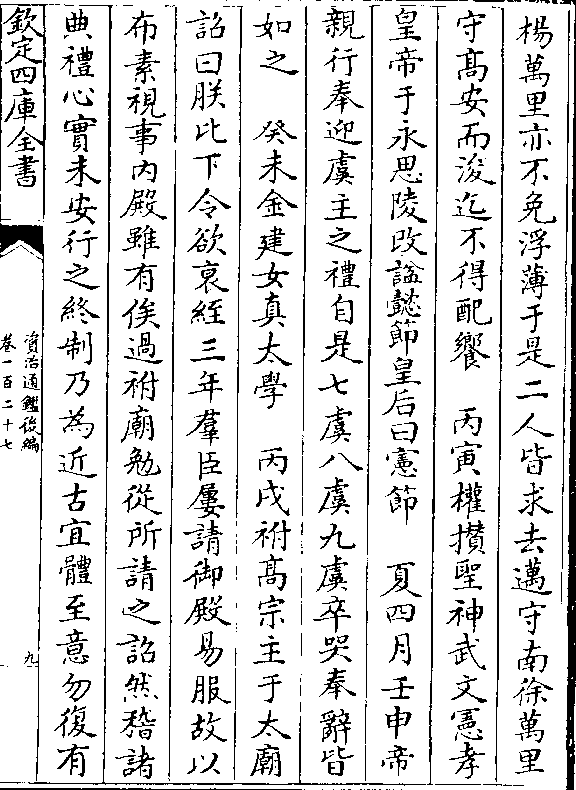 楊萬里亦不免浮薄于是二人皆求去邁守南徐萬里
守髙安而浚迄不得配饗　丙寅權攅聖神武文憲孝
皇帝于永思陵改謚懿節皇后曰憲節　夏四月壬申帝
親行奉迎虞主之禮自是七虞八虞九虞卒哭奉辭皆
如之　癸未金建女真太學　丙戌祔髙宗主于太廟
詔曰朕比下令欲衰絰三年羣臣屢請御殿易服故以
布素視事内殿雖有俟過祔廟勉從所請之詔然稽諸
典禮心實未安行之終制乃為近古宜體至意勿復有
欽定四庫全書
資治通鑑後編
卷一百二十七
九